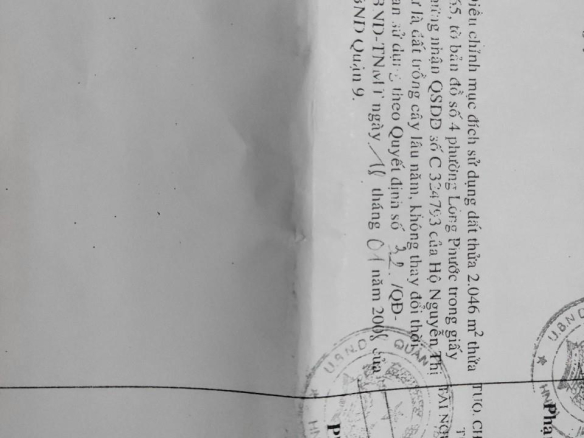 iều chỉnh mục đích sử dụng đất thửa 2.046 m² thửa
65, tờ bản đồ số 4 phường Long Phước trong giấy
ứng nhận QSDĐ số C 324793 của Hộ Nguyễn Thị
ư là đất trồng cây lâu năm, không thay đổi thời
ạn sử dụng theo Quyết định số 32 /QĐ-
BND-TNMT ngày 18 tháng 01 năm 2008 của
BND Quận 9.
TUQ. CH
TÀI NGU
U.B.N.D QUẬN
U.B.ND
Pha